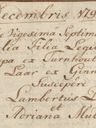 Decembris 179
Vigesima Septim
lia Filia Legit
pa ex Turnhout
Laar ex Ginn
Suscepere
Lambertus D
Adriana Mul